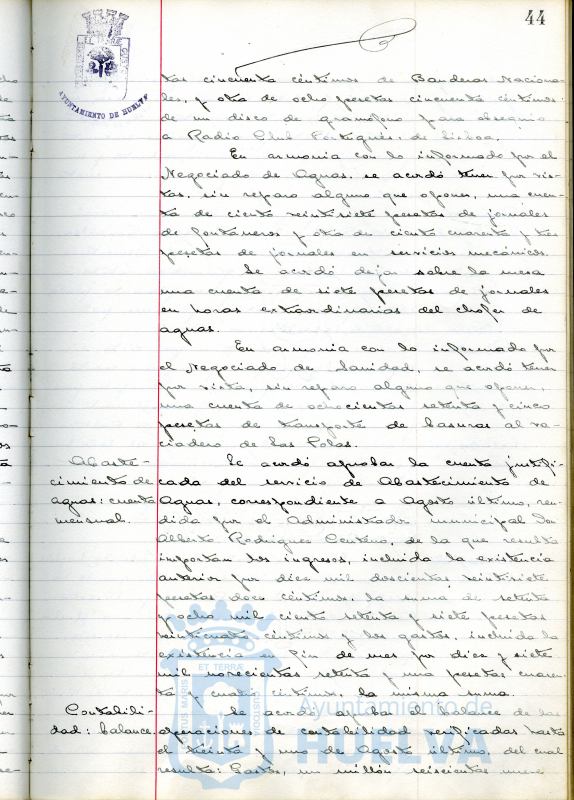 44
AYUNTAMIENTO DE HUELVA
tas cincuenta céntimos de Banderas Naciona-
les, y otra de ocho pesetas cincuenta céntimos
de un disco de gramofono para obsequio
a Radio Club Portugués, de Lisboa.
En armonia con lo informado por el
Negociado de Aguas, se acordó tener por vis-
tas, sin reparo alguno que oponer, una cuen-
ta de ciento veintisiete pesetas de jornales
de fontaneros y otra de ciento cuarenta y tres
pesetas de jornales en servicios mecánicos.
Se acordó dejar sobre la mesa
una cuenta de siete pesetas de jornales
en horas extraordinarias del chofer de
aguas.
En armonia con lo informado por
el Negociado de Sanidad, se acordó tener
por vista, sin reparo alguno que oponer,
una cuenta de ochocientas setenta y cinco
pesetas de transporte de basuras al va-
ciadero de las Polas.
Abaste-
cimiento de
aguas: cuenta
mensual.
Se acordó aprobar la cuenta justifi-
cada del servicio de Abastecimiento de
Aguas, correspondiente a Agosto último, ren-
dida por el Administrador municipal Don
Alberto Rodriguez Centeno, de la que resulta
importan los ingresos, incluida la existencia
anterior por diez mil doscientas veintisiete
pesetas doce céntimos, la suma de setenta
y ocho mil ciento setenta y siete pesetas
veinticuatro céntimos y los gastos, incluida la
existencia en fin de mes por diez y siete
mil novecientas setenta y una pesetas cuaren-
ta y cuatro céntimos, la misma suma.
Contabili-
dad: balance.
Se acordó aprobar el balance de las
operaciones de contabilidad verificadas hasta
el treinta y uno de Agosto último, del cual
resulta: Gastos, un millón seiscientas nueve
Ayuntamiento de
HUELVA